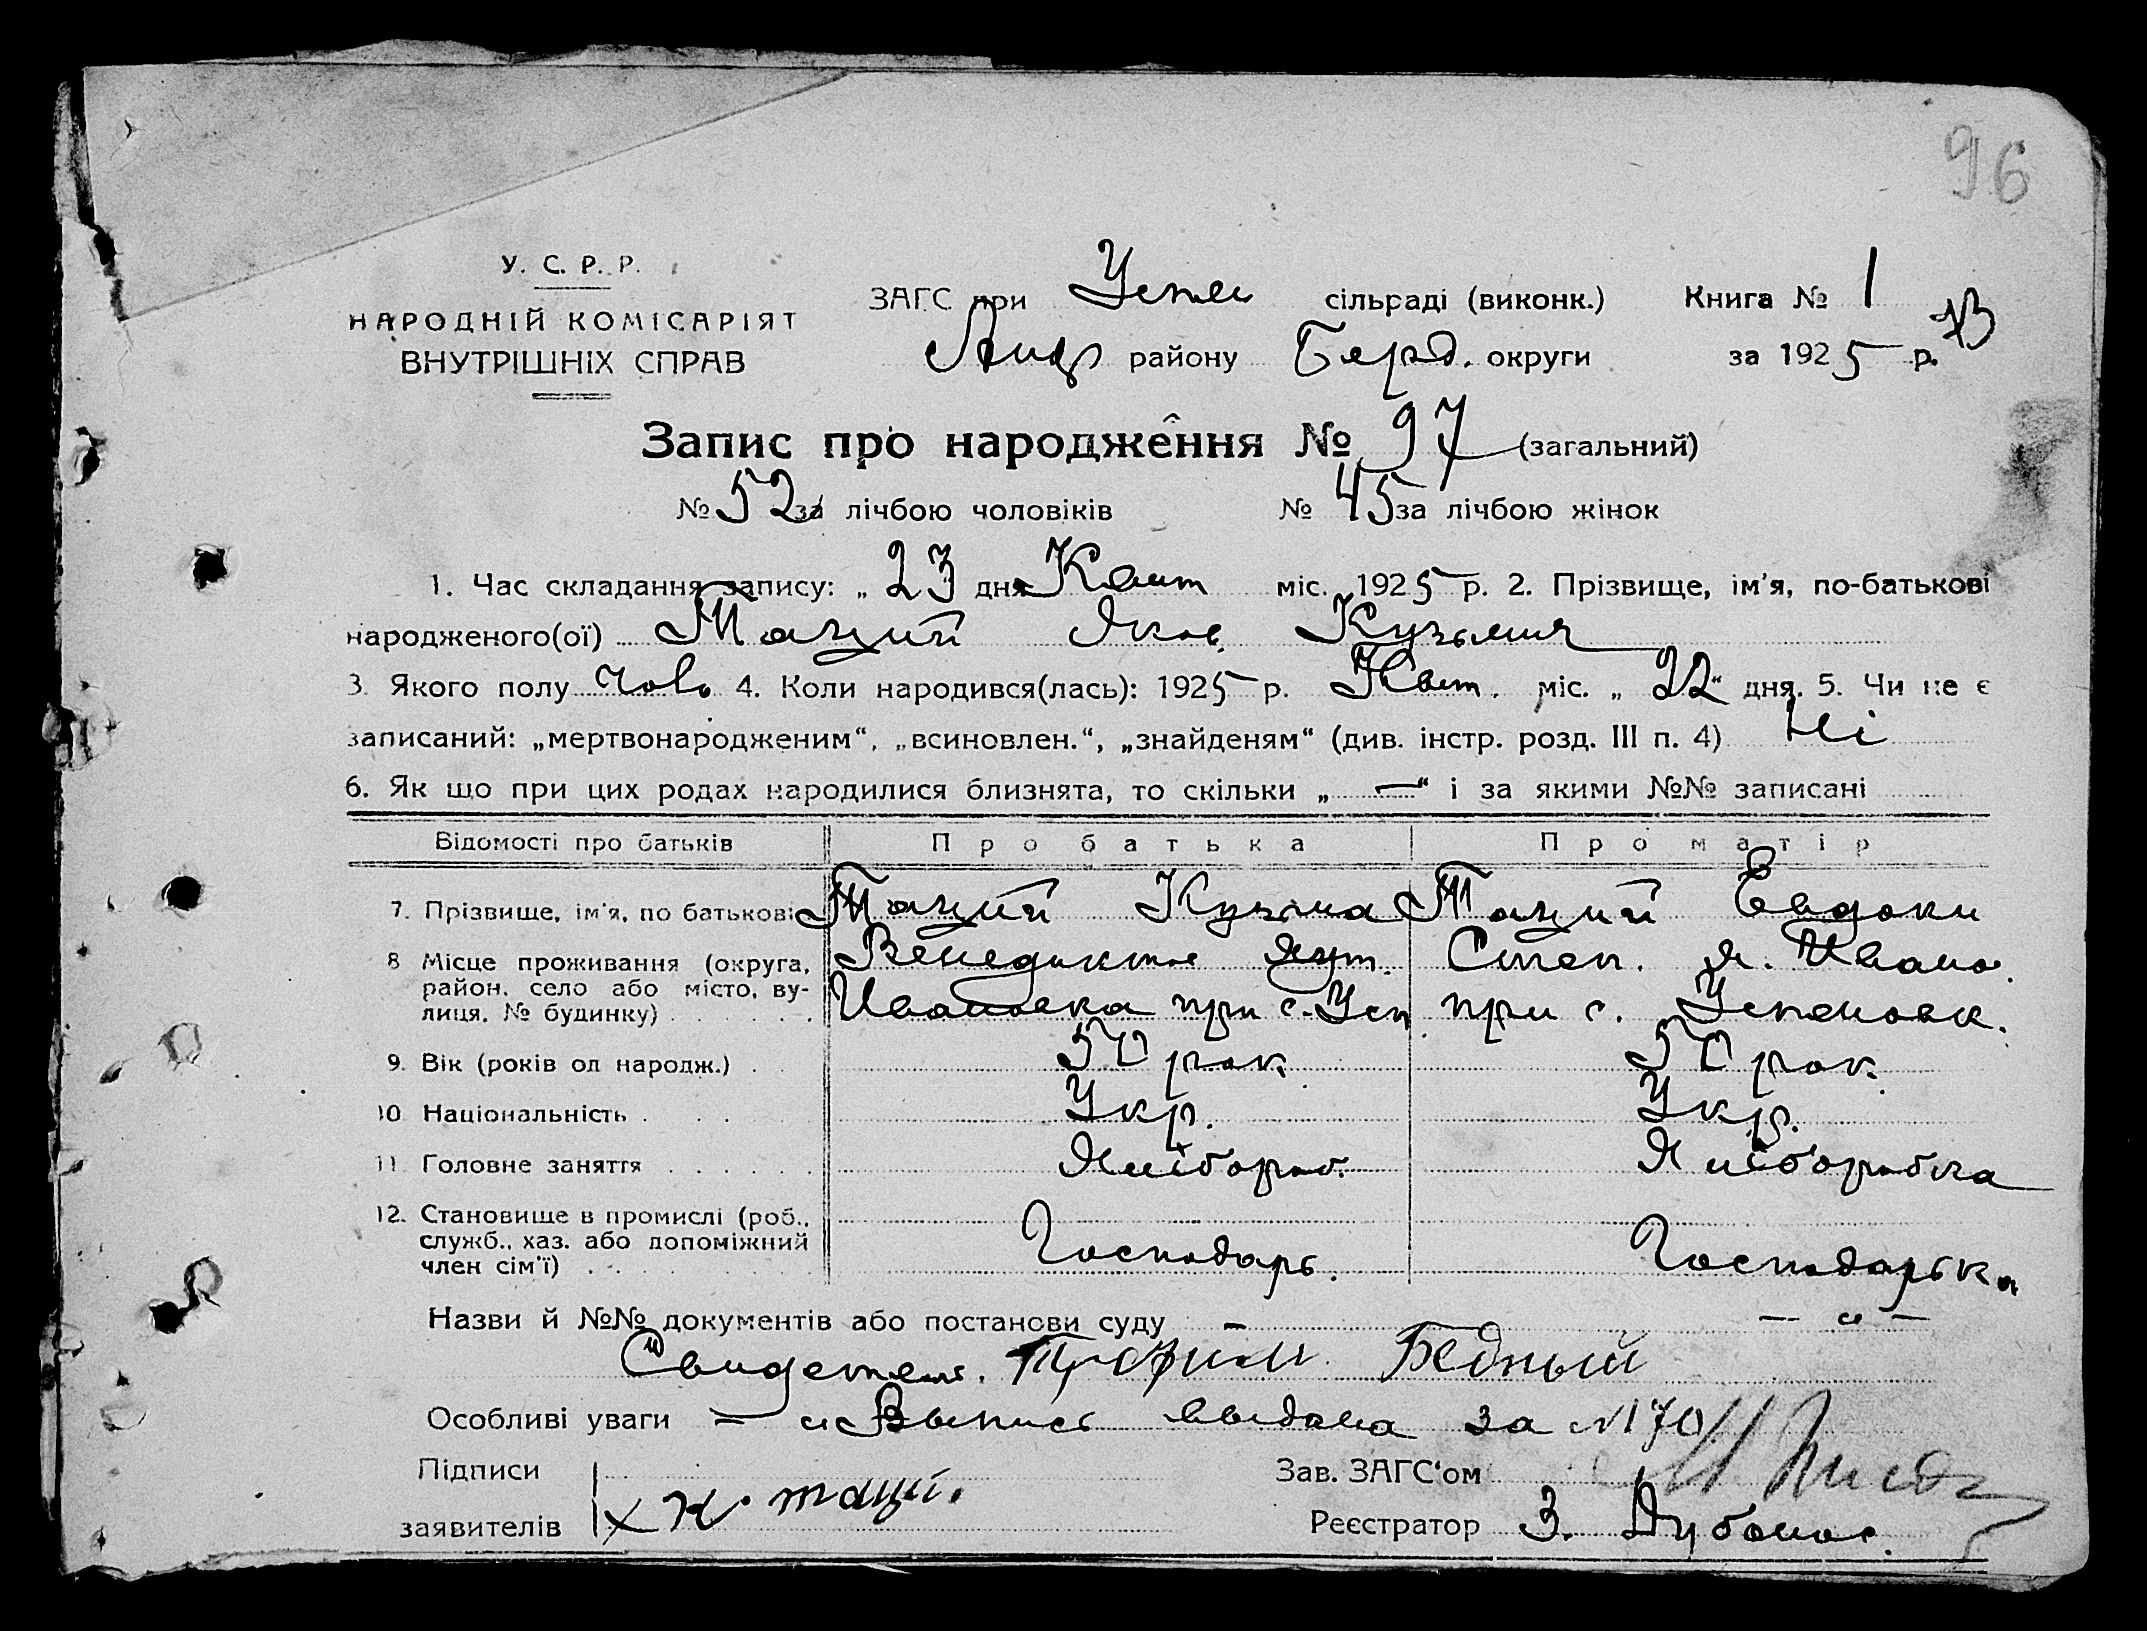 96
У. С. Р. Р.
НАРОДНІЙ КОМІСАРІЯТ
ВНУТРІШНІХ СПРАВ
ЗАГС при Успен сільраді (виконк.) Книга № 1
району Берд. округи за 1925 р.
Запис про народження № 97 (загальний)
№ 52 за лічбою чоловіків № 45 за лічбою жінок
1. Час складання запису: „ 23 дня Квіт міс. 1925 р. 2. Прізвище, ім'я, по-батькові
народженого(ої) Таций Яков Кузьмич
3. Якого полу Чолов 4. Коли народився(лась): 1925 р. Квіт. міс. „ 22 “ дня. 5. Чи не є
записаний: „мертвонародженим“, „всиновлен.“, „знайденям“ (див. інстр. розд. III п. 4) Ні
6. Як що при цих родах народилися близнята, то скільки „ — “ і за якими №№ записані
Відомості про батьків Про батька Про матір
7. Прізвище, ім'я, по батькові Таций Кузьма Таций Евдоки
8 Місце проживання (округа, Венедиктов хут. Степ. х. Ивано.
район, село або місто, ву-
лиця, № будинку) Ивановка при с. Усп при с. Успеновк.
9. Вік (років од народж.) 50 рок. 50 рок.
10 Національність Укр. Укр.
11 Головне заняття Хлібороб. Хліборобка
12. Становище в промислі (роб.,
служб., хаз. або допоміжний Господарь. Господарька
член сім'ї)
Назви й №№ документів або постанови суду — — " —
Свидетель. Трофим Бедный
Особливі уваги — Выпись выдана за №170
Підписи Зав. ЗАГС'ом
заявителів х К. таций. Реєстратор З. Дубонос.